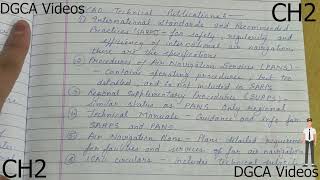 DGCA Videos
CH2
ICAO Technical Publications
① International Standards and Recommended
Practices (SARPS) - for safety, regularity and
efficiency of international air navigation,
these are the specifications
② Procedures of Air Navigation Services (PANS)
- contains operating procedures, but too
detailed, and so not included in SARPS
③ Regional Supplementary Procedures (SUPPS)
similar status as PANS. Only regional
④ Technical Manuals - Guidance and info for
SARPS and PANS
⑤ Air Navigation Plans - Plans detailed requirements
for facilities and services of for air navigation
⑥ ICAO circulars - includes technical
CH2
DGCA Videos